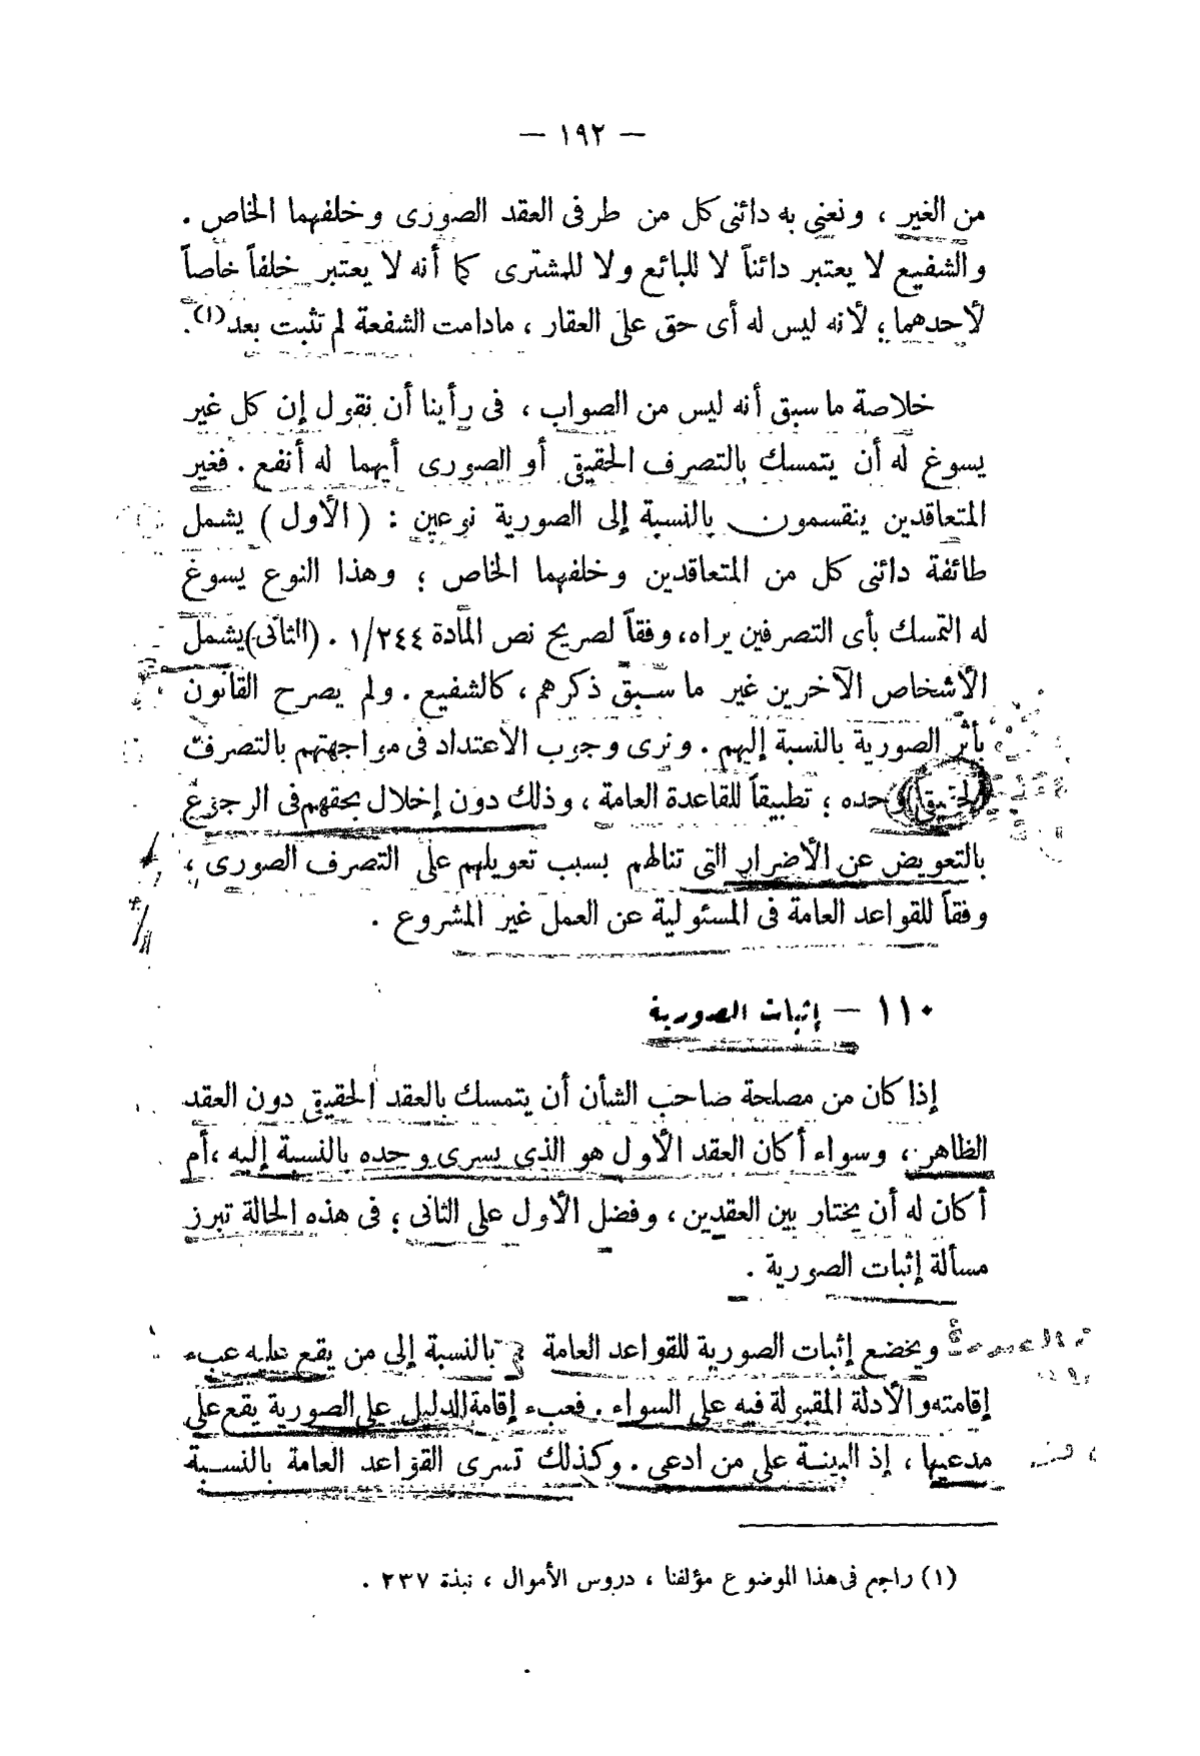 — ١٩٢ —
من الغير ، ونعنى به دائنى كل من طرفى العقد الصورى وخلفهما الخاص .
والشفيع لا يعتبر دائناً لا للبائع ولا للمشترى كما أنه لا يعتبر خلفاً خاصاً
لأحدهما ؛ لأنه ليس له أى حق على العقار ، مادامت الشفعة لم تثبت بعد (١).
خلاصة ما سبق أنه ليس من الصواب ، فى رأينا أن نقول إن كل غير
يسوغ له أن يتمسك بالتصرف الحقيقى أو الصورى أيهما له أنفع . فغير
المتعاقدين ينقسمون بالنسبة إلى الصورية نوعين : ( الأول ) يشمل
طائفة دائنى كل من المتعاقدين وخلفهما الخاص ؛ وهذا النوع يسوغ
له التمسك بأى التصرفين يراه، وفقاً لصريح نص المادة ١/٢٤٤ . (الثانى) يشمل
الأشخاص الآخرين غير ما سبق ذكرهم ، كالشفيع . ولم يصرح القانون
بأثر الصورية بالنسبة إليهم . ونرى وجوب الاعتداد فى مواجهتهم بالتصرف
الحقيقى وحده ؛ تطبيقاً للقاعدة العامة ، وذلك دون إخلال بحقهم فى الرجوع
بالتعويض عن الأضرار التى تنالهم بسبب تعويلهم على التصرف الصورى ،
وفقاً للقواعد العامة فى المسئولية عن العمل غير المشروع .
١١٠ — إثبات الصورية
إذا كان من مصلحة صاحب الشأن أن يتمسك بالعقد الحقيقى دون العقد
الظاهر ، وسواء أكان العقد الأول هو الذى يسرى وحده بالنسبة إليه ، أم
أكان له أن يختار بين العقدين ، وفضل الأول على الثانى ؛ فى هذه الحالة تبرز
مسألة إثبات الصورية .
ويخضع إثبات الصورية للقواعد العامة بالنسبة إلى من يقع عليه عبء
إقامته والأدلة المقبولة فيه على السواء . فعبء إقامة الدليل على الصورية يقع على
مدعيها ، إذ البينة على من ادعى . وكذلك تسرى القواعد العامة بالنسبة
(١) راجع فى هذا الموضوع مؤلفنا ، دروس الأموال ، نبذة ٢٣٧ .